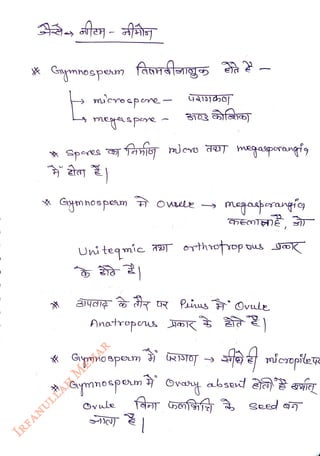 जैसे → नीटम - नीमोन
* Gymnosperm विषमबीजाणुक होते हैं -
→ microspore - परागकण
→ megaspore - अण्ड कोशिका
* Spores का निर्माण micro तथा megasporangia
में होता है|
* Gymnosperm में Ovule → megasporangia
कहलाता है, जो
Unitegmic तथा orthotropous प्रकार
के होते हैं|
* अपवाद के तौर पर Pinus में Ovule
Anatropous प्रकार के होते हैं|
* Gymnosperm में परागण → सीधे ही micropile पर
* Gymnosperm में Ovary absent होती है अर्थात्
Ovule बिना फलभित्ति के Seed बन
जाता है|
IRFANULLAH MAZHAR